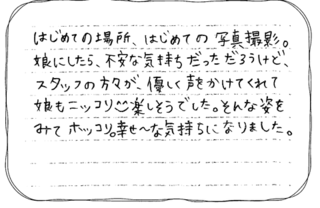 はじめての場所、はじめての写真撮影。
娘にしたら、不安な気持ちだっただろうけど、
スタッフの方々が、優しく声をかけてくれて
娘もニッコリ☺楽しそうでした。そんな姿を
みてホッコリ。幸せ〜な気持ちになりました。